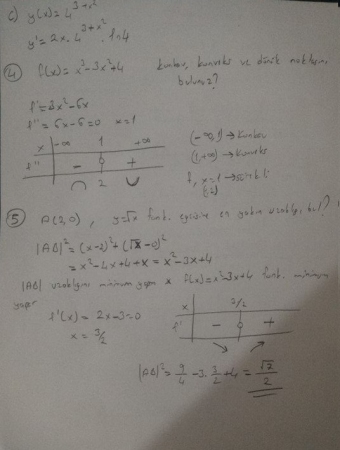 c) y(x) = 4^(3+x²)
y' = 2x · 4^(3+x²) · ln4
④ f(x) = x³-3x²+4 konkav, konveks ve dönük noktasını bulunuz?
f' = 3x²-6x
f'' = 6x-6=0 x=1
x | -∞ 1 +∞
f'' | - 0 +
2
(-∞,1) → konkav
(1,+∞) → konveks
f, x=1 →
(1,2)
⑤ A(2,0), y=√x fonk. eğrisine en yakın uzaklığı bul?
|AB|² = (x-2)² + (√x-0)²
= x²-4x+4+x = x²-3x+4
|AB| uzaklığını minimum yapan x f(x)=x²-3x+4 fonk. minimum yapar
f'(x) = 2x-3=0
x = 3/2
x | 3/2
f' | - 0 +
|AB|² = 9/4 - 3·3/2 + 4 = √7/2